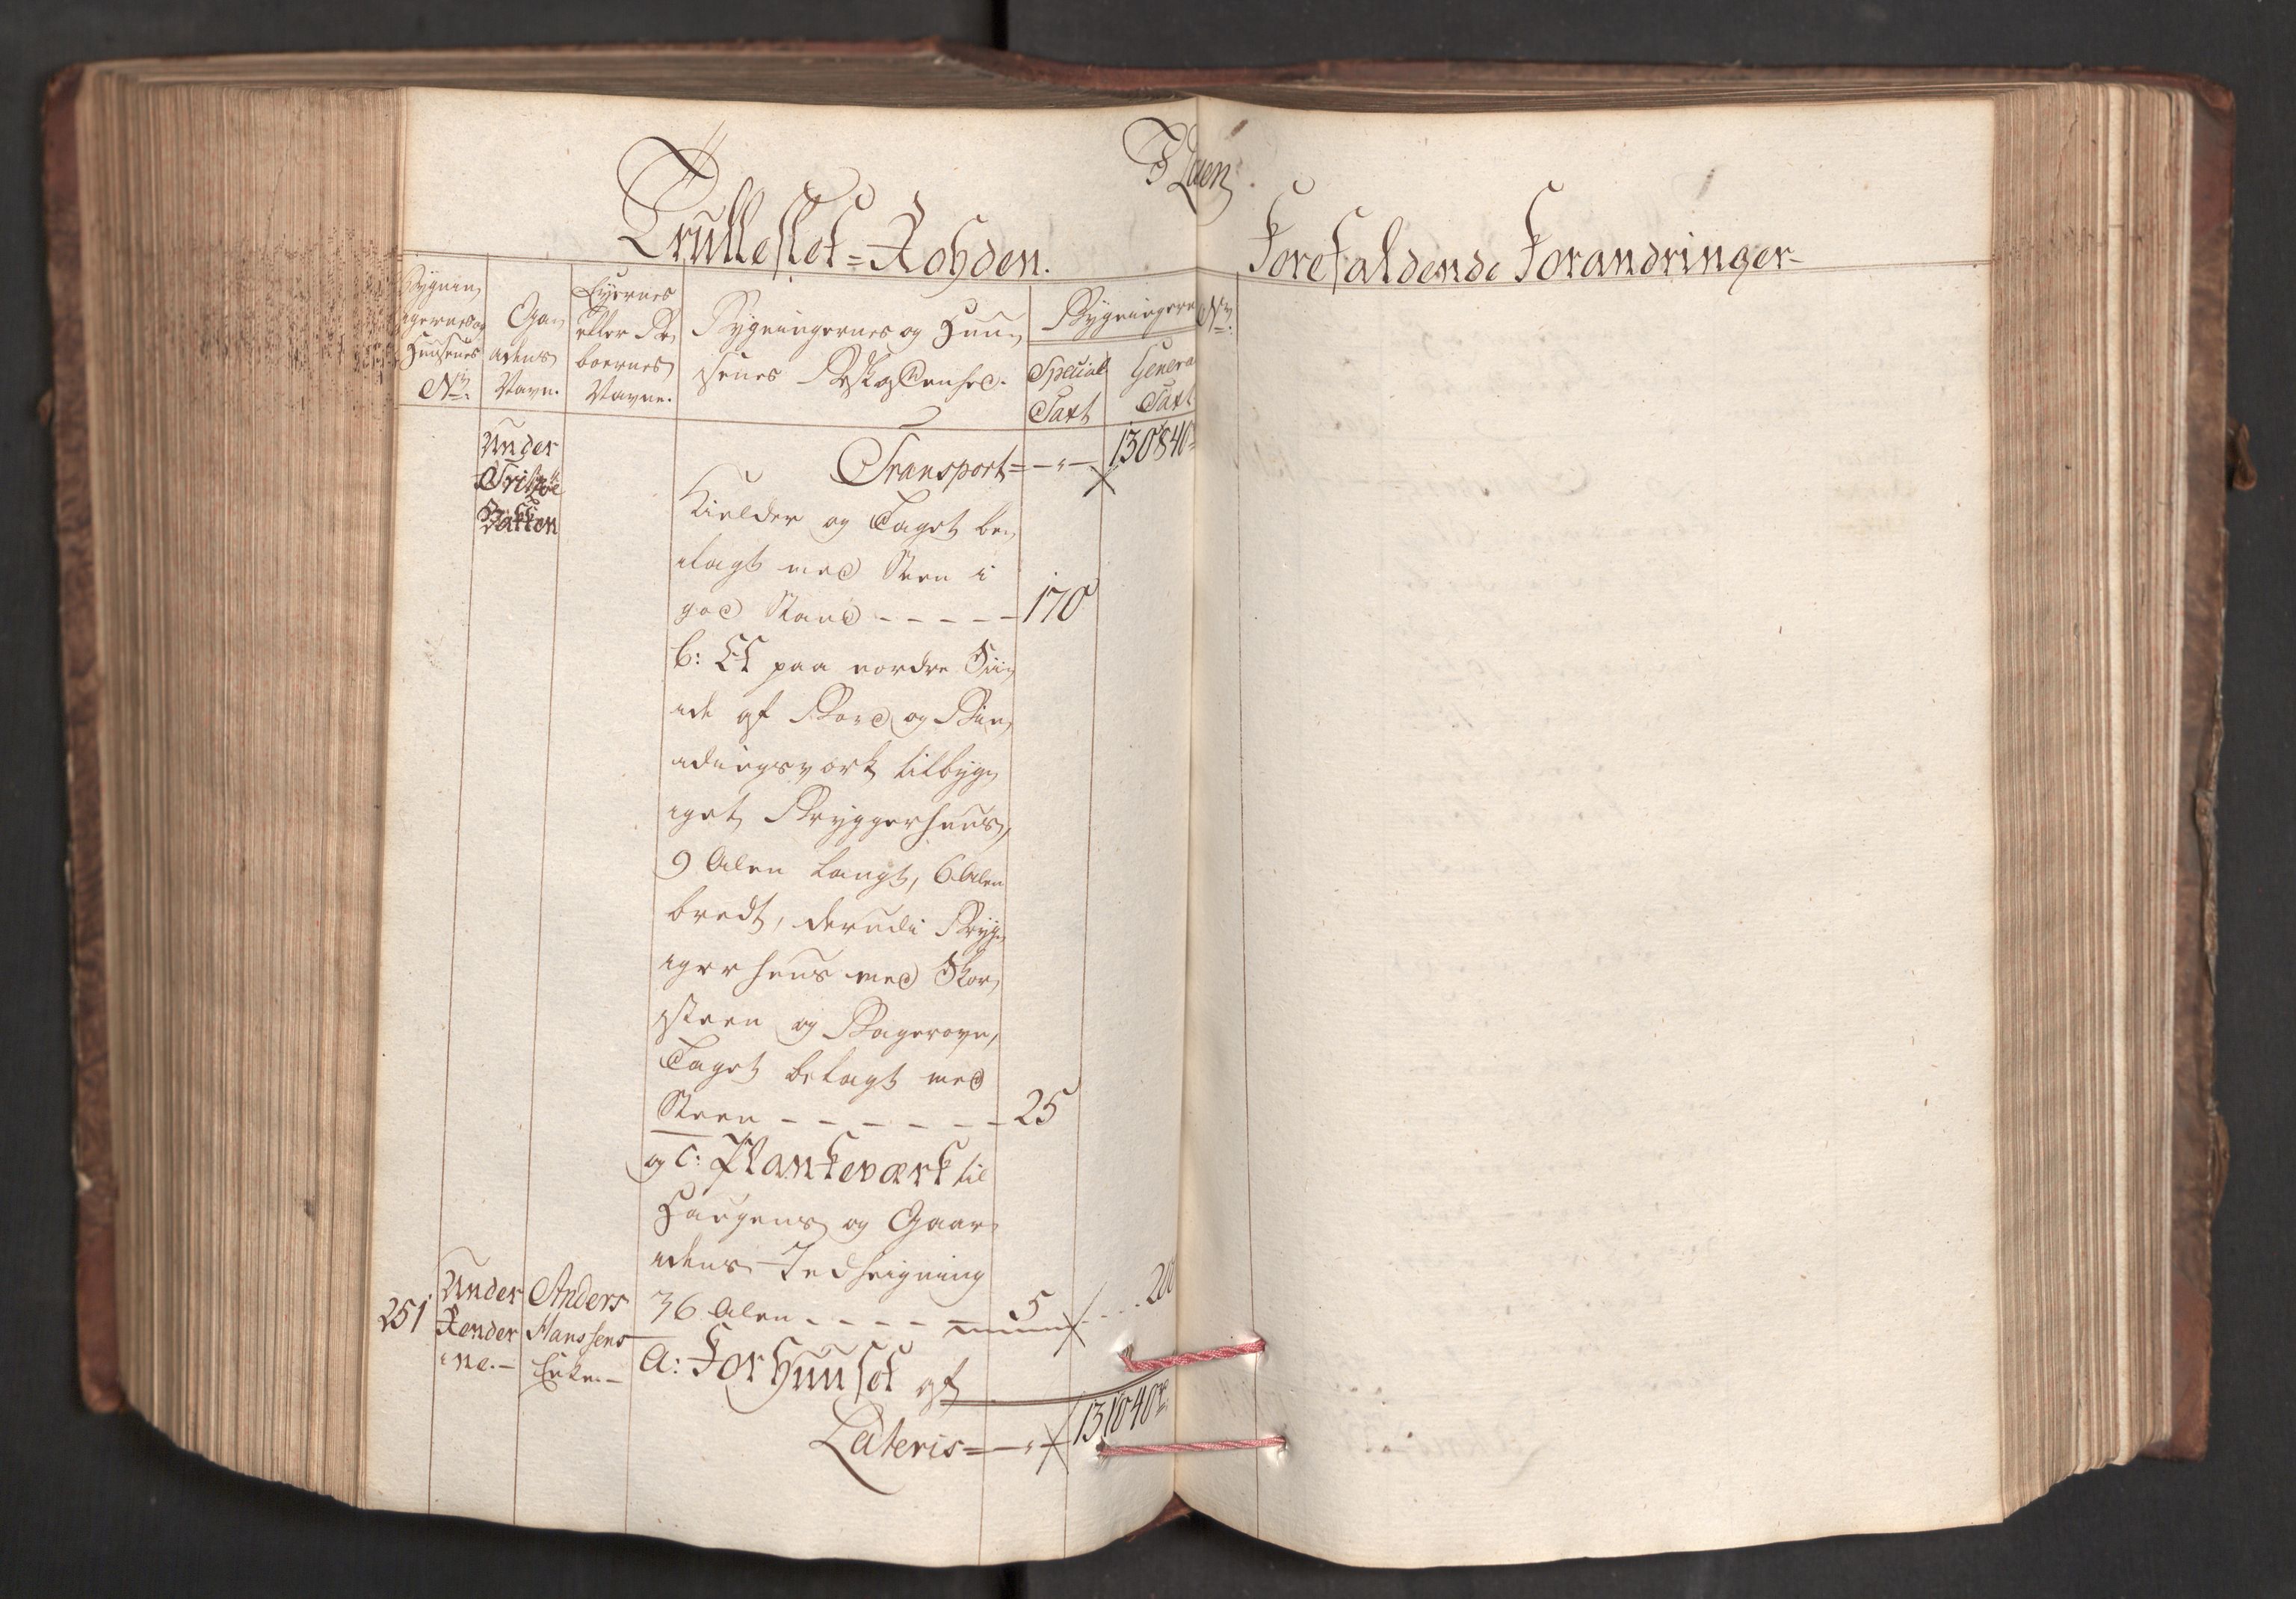 Trulleslet=Rohden.
Forefaldende Forandringer
Bygnin
gernes og
Huusenes
No:
Ga
ardens
Navn.
Eyernes
eller Be
boernes
Navne.
Bygningernes og Huu
senes Beskaffenhed.
Bygningern
Special
Taxt
Genera
Taxt
No:
Under
Bakken
Transport= 130840
Kielder og Taget be
lagt med Steen i
god Stand - - - - - 170
b: Et paa nordre Sii
de af Bord og Bin
dingsværk tilbyg
get Bryggerhuus,
9 Alen langt, 6 Alen
bredt, derudi Bryg
gerhuus med Skor
steen og Bagerovn,
Taget belagt med
Steen - - - - - - 25
og c: Plankeværk til
Haugens og Gaar
dens Indheigning
36 Alen - - - - 5 200
251
Under
Anders
Hanssens
Enke.
a: Forhuuset af
Lateris= 131040